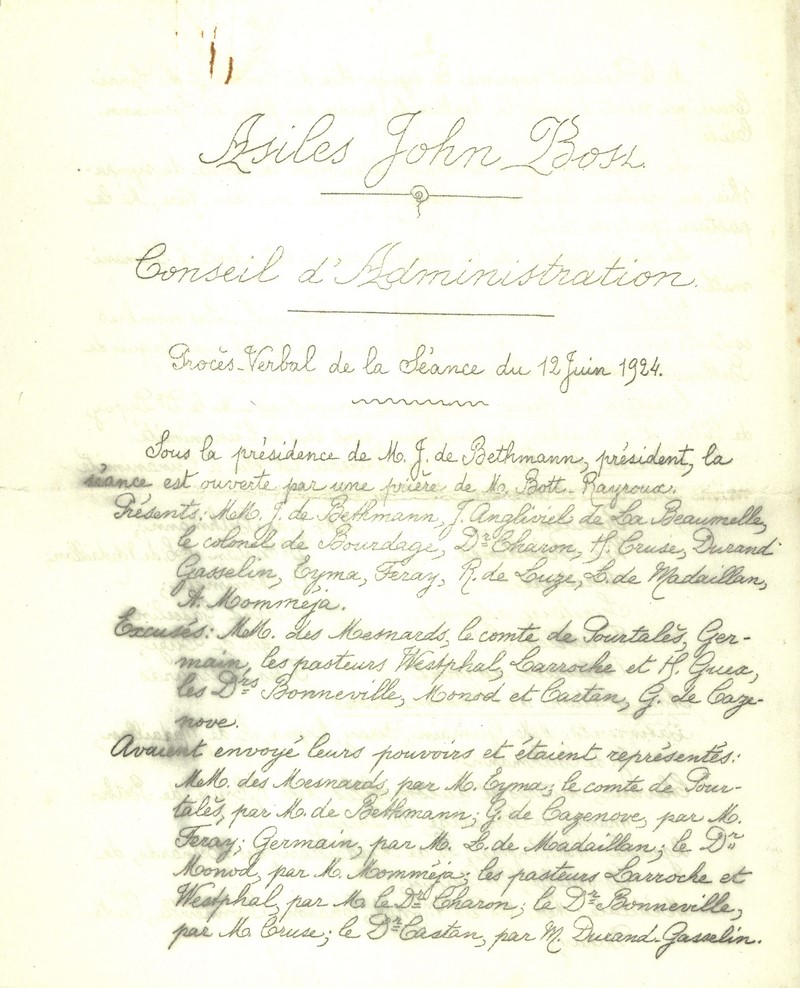 Asiles John Bost
Conseil d'Administration.
Procès-Verbal de la Séance du 12 Juin 1924.
Sous la présidence de M. J. de Bethmann, président, la
séance est ouverte par une prière de M. Bott-Rayroux.
Présents: MM. J. de Bethmann, J. Angliviel de La Beaumelle,
le colonel de Bourdage, Dr Charon, H. Cruse, Durand-
Gasselin, Eyma, Feray, R. de Luze, L. de Madaillan,
A. Momméja.
Excusés: MM. des Mesnards, le comte de Pourtalès, Ger-
main, les pasteurs Westphal, Larroche et H. Guex,
les Drs Bonneville, Monod et Castan, G. de Caze-
nove.
Avaient envoyé leurs pouvoirs et étaient représentés:
MM. des Mesnards, par M. Eyma; le comte de Pour-
talès, par M. de Bethmann; G. de Cazenove, par M.
Feray; Germain, par M. L. de Madaillan; le Dr
Monod, par M. Momméja; les pasteurs Larroche et
Westphal, par M. le Dr Charon; le Dr Bonneville,
par M. Cruse; le Dr Castan, par M. Durand-Gasselin.